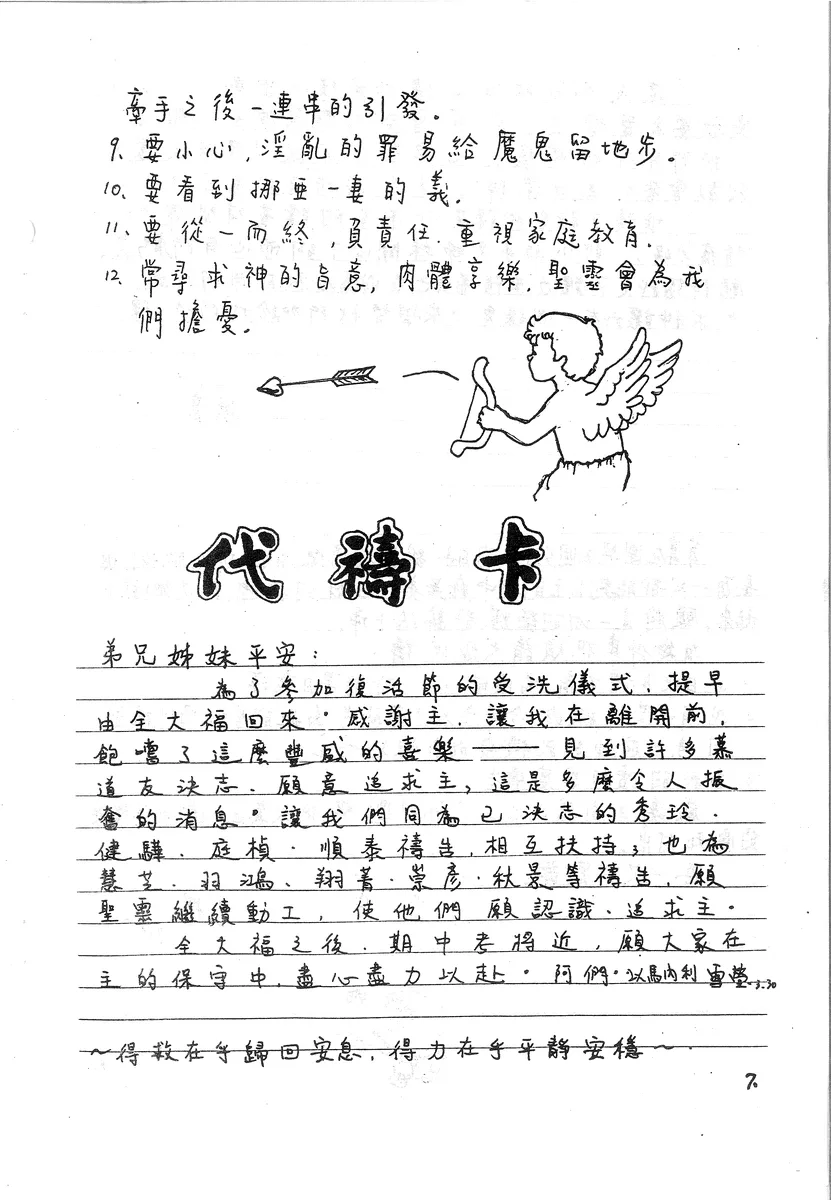 牽手之後一連串的引發。
9、要小心,淫亂的罪易給魔鬼留地步。
10、要看到挪亞一妻的義。
11、要從一而終,負責任.重視家庭教育.
12、常尋求神的旨意,肉體享樂.聖靈會為我
們擔憂。
代禱卡
弟兄姊妹平安:
為了參加復活節的受洗儀式.提早
由全大福回來。感謝主.讓我在離開前,
飽嚐了這麼豐盛的喜樂——見到許多慕
道友決志.願意追求主,這是多麼令人振
奮的消息。讓我們同為已決志的秀玲.
健驊.庭楨.順泰禱告,相互扶持;也為
慧芝.羽鴻、翔菁.崇彥.秋景等禱告.願
聖靈繼續動工,使他們願認識.追求主.
全大福之後.期中考將近,願大家在
主的保守中.盡心盡力以赴。阿們.以馬內利 雪瑩 3.30
~得救在乎歸回安息,得力在乎平靜安穩~.
7.